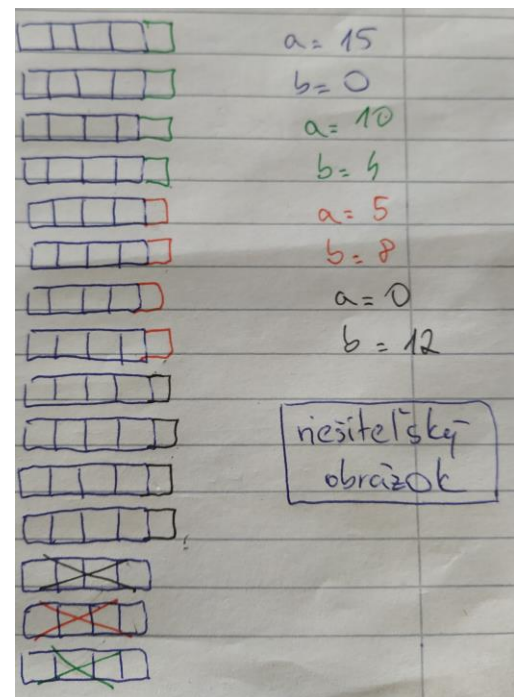 a = 15
b = 0
a = 10
b = 4
a = 5
b = 8
a = 0
b = 12
riešiteľský
obrázok